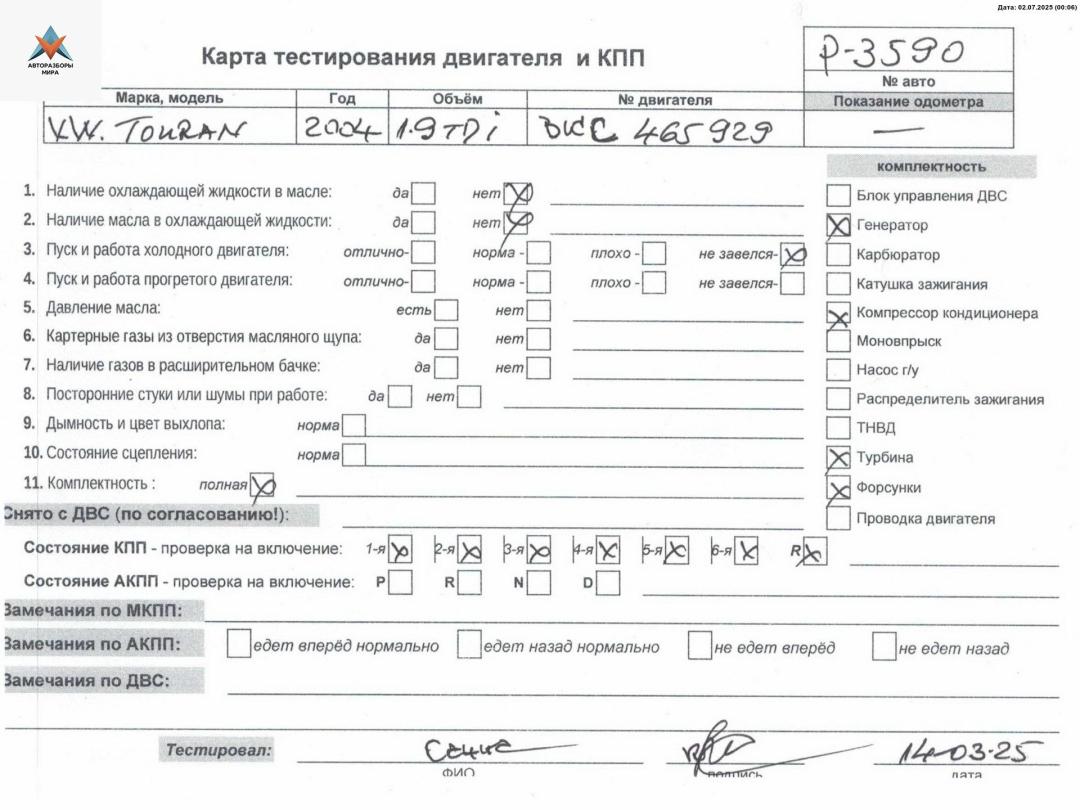 Дата: 02.07.2025 (00:06)
АВТОРАЗБОРЫ
МИРА
Карта тестирования двигателя и КПП
P-3590
№ авто
Марка, модель Год Объём № двигателя Показание одометра
VW. TOURAN 2004 1.9 TDi BKC 465929 —
комплектность
1. Наличие охлаждающей жидкости в масле: да нет
Блок управления ДВС
2. Наличие масла в охлаждающей жидкости: да нет
Генератор
3. Пуск и работа холодного двигателя: отлично- норма - плохо - не завелся-
Карбюратор
4. Пуск и работа прогретого двигателя: отлично- норма - плохо - не завелся-
Катушка зажигания
5. Давление масла: есть нет
Компрессор кондиционера
6. Картерные газы из отверстия масляного щупа: да нет
Моновпрыск
7. Наличие газов в расширительном бачке: да нет
Насос г/у
8. Посторонние стуки или шумы при работе: да нет
Распределитель зажигания
9. Дымность и цвет выхлопа: норма
ТНВД
10. Состояние сцепления: норма
Турбина
11. Комплектность : полная
Форсунки
Снято с ДВС (по согласованию!):
Проводка двигателя
Состояние КПП - проверка на включение: 1-я 2-я 3-я 4-я 5-я 6-я R
Состояние АКПП - проверка на включение: P R N D
Замечания по МКПП:
Замечания по АКПП: едет вперёд нормально едет назад нормально не едет вперёд не едет назад
Замечания по ДВС:
Тестировал: 14-03-25
ФИО подпись дата